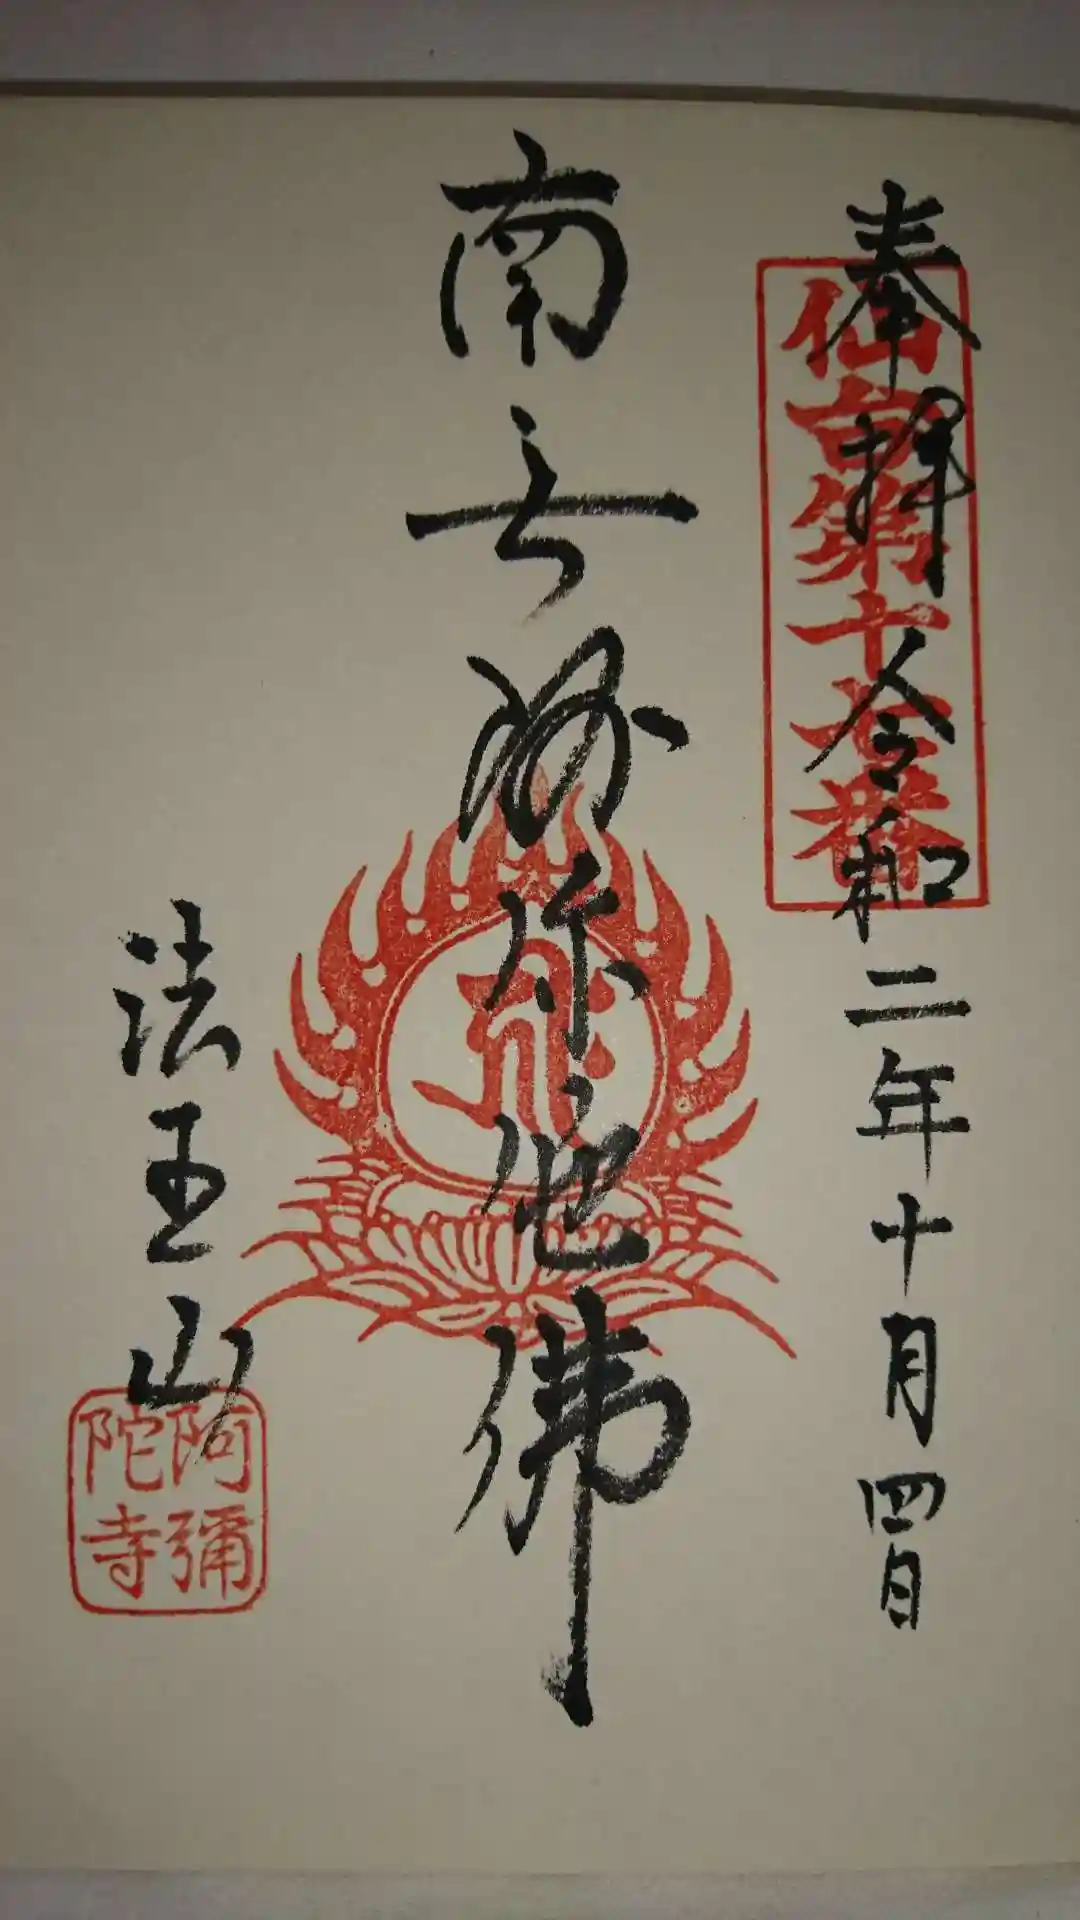 奉拝 令和二年十月四日
仙台第十七番
南無阿弥陀佛
法王山
阿彌陀寺